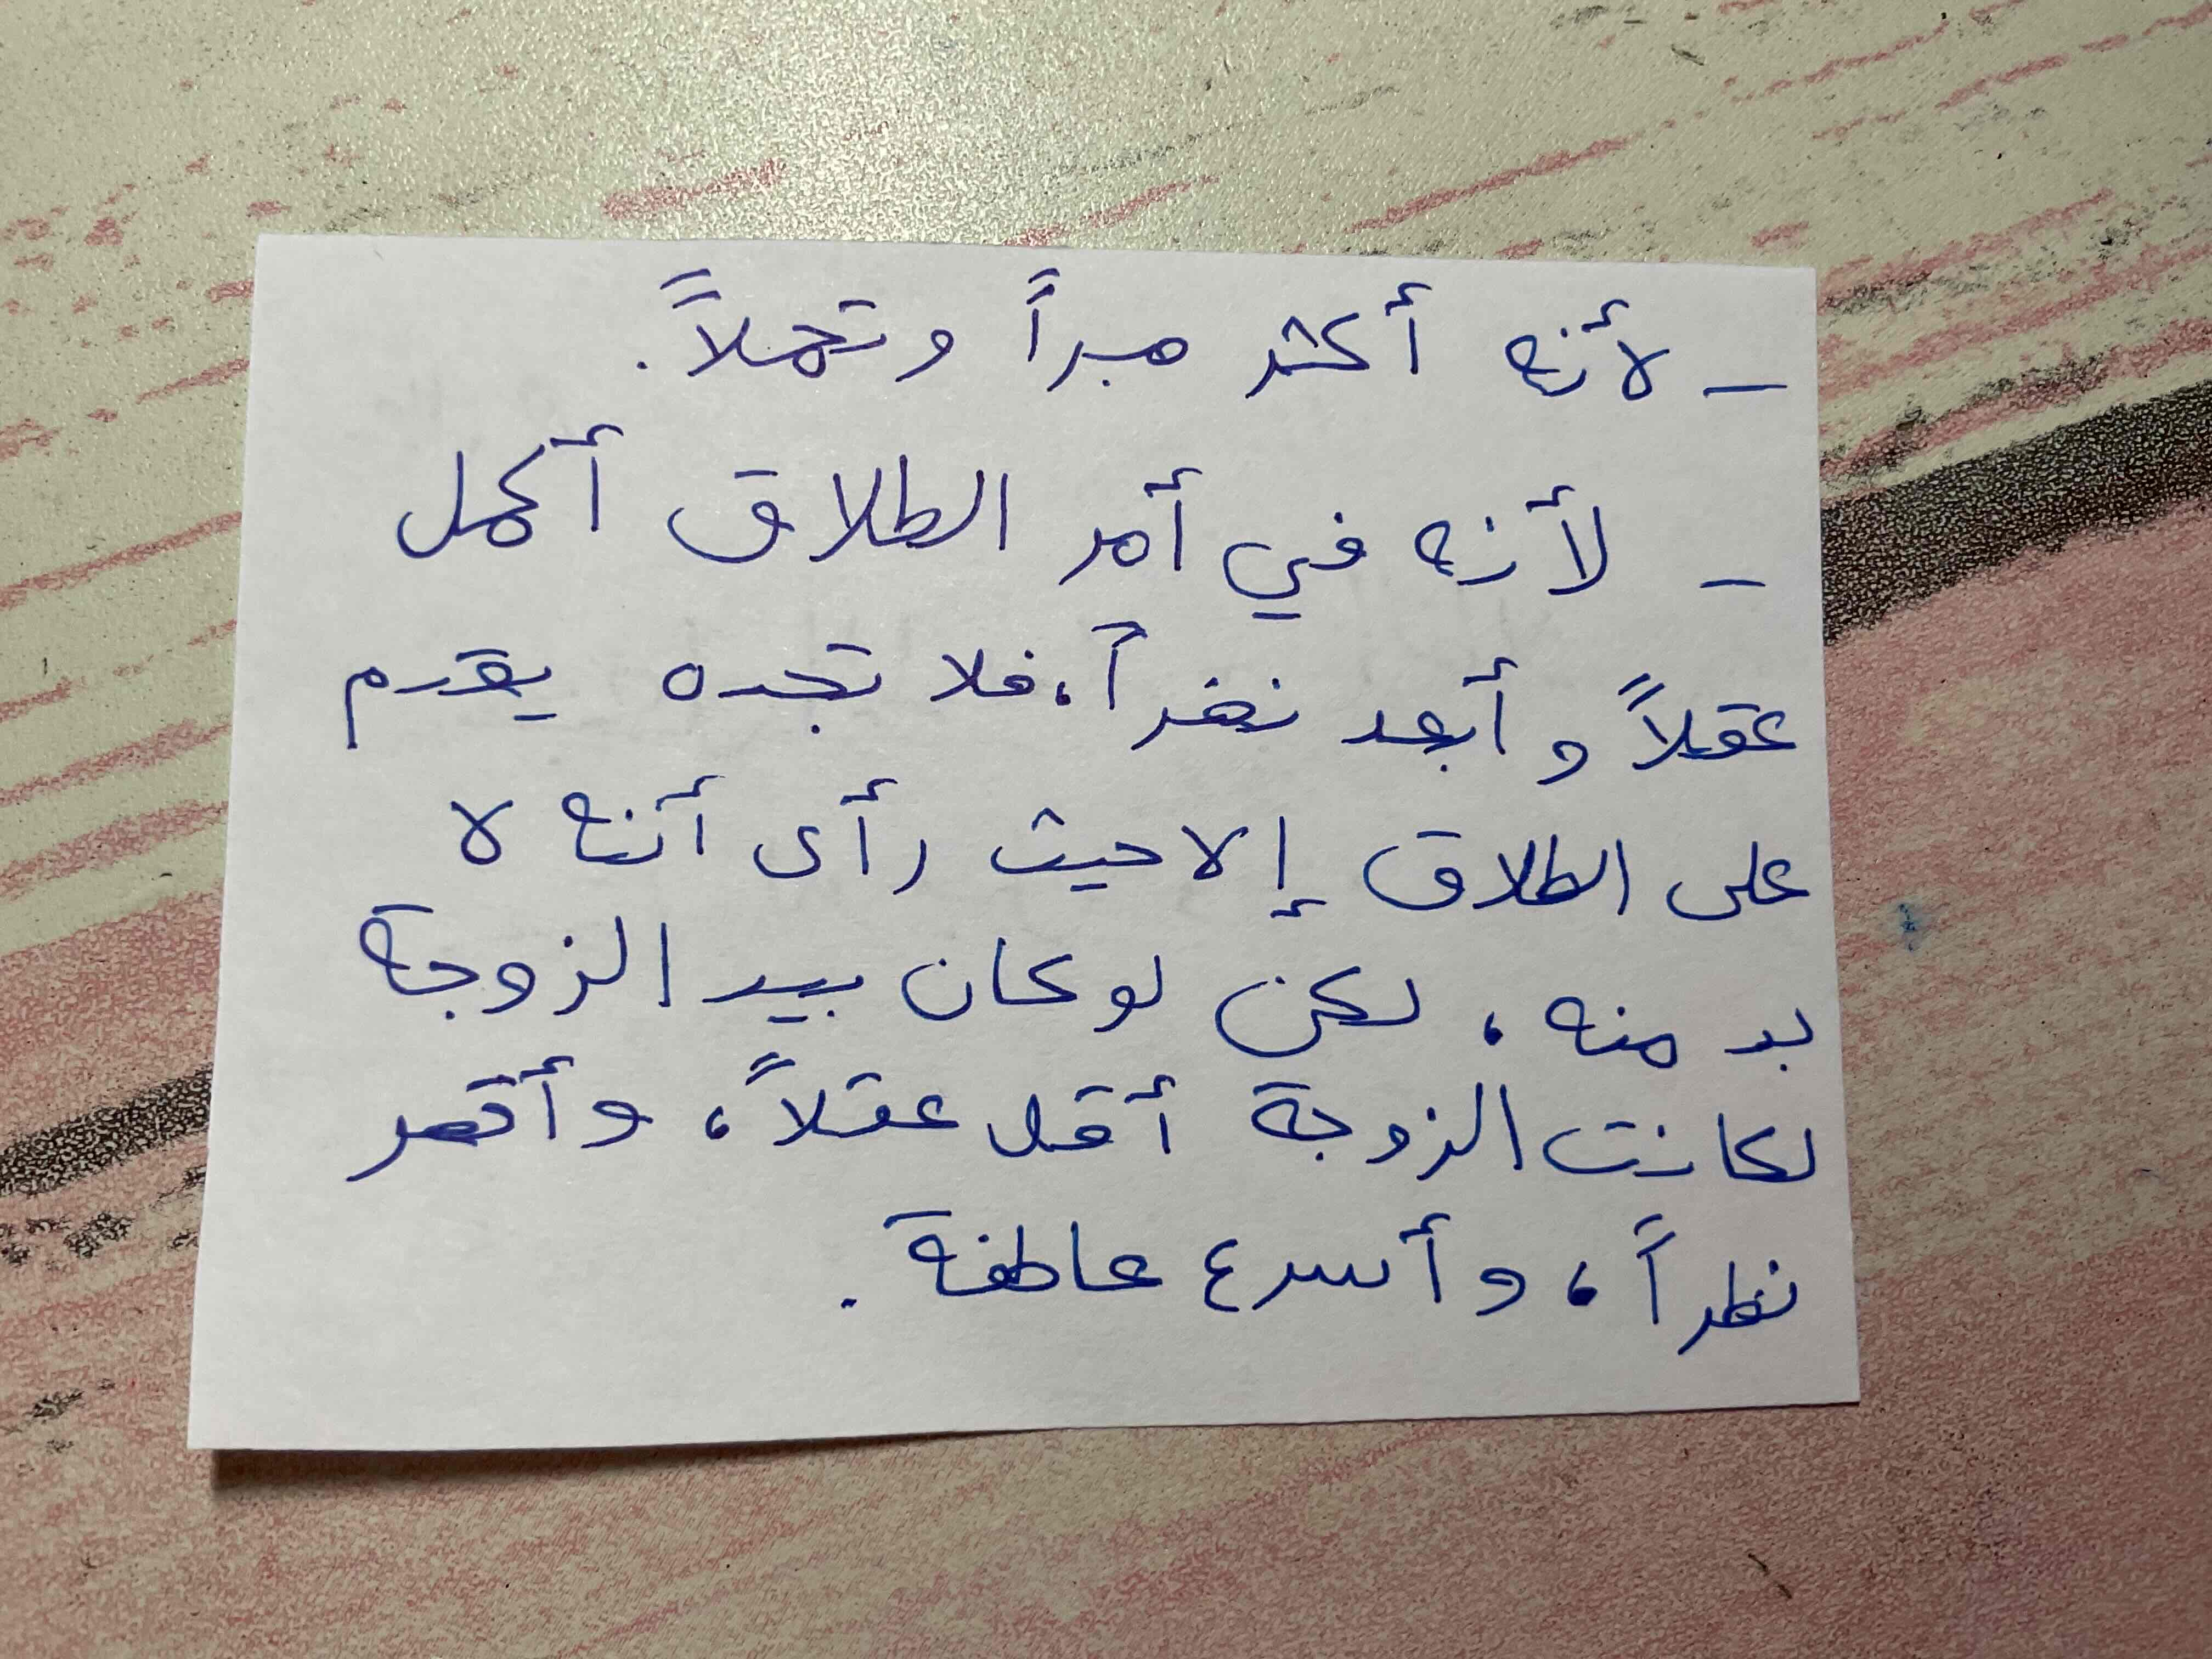 - لأنه أكثر صبراً وتحملاً.
- لأنه في أمر الطلاق أكمل
عقلاً وأبعد نضراً، فلا تجده يقدم
على الطلاق إلا حيث رأى أنه لا
بد منه، لكن لو كان بيد الزوجة
لكانت الزوجة أقل عقلاً، وأقصر
نظراً، وأسرع عاطفة.